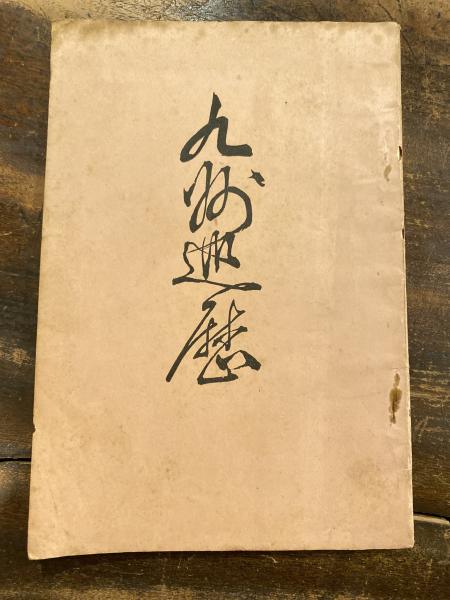 九州巡歴